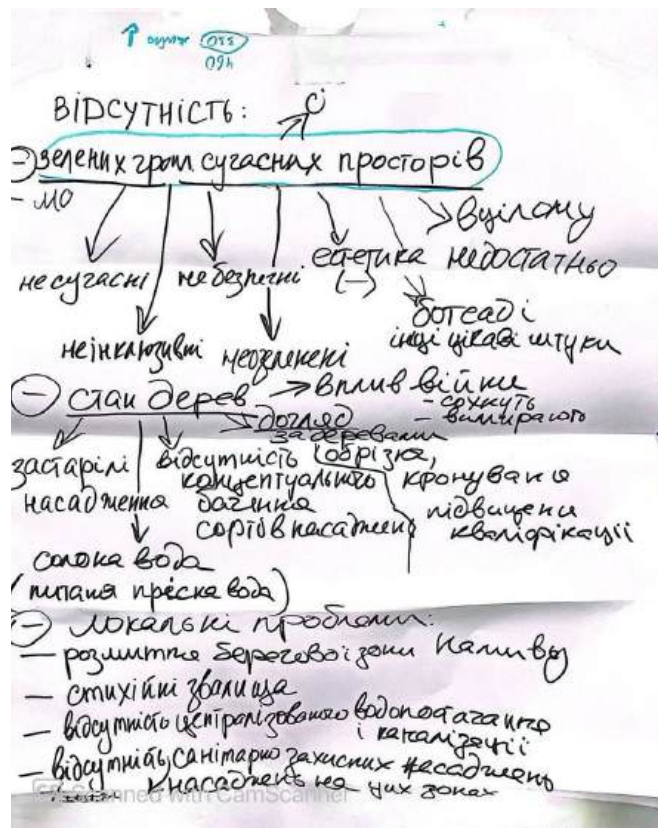 ВІДСУТНІСТЬ:
зелених гром. сучасних просторів
- МО
вцілому
недостатньо
естетика
(-)
не сучасні
небезпечні
ботсаді
інші цікаві штуки
неінклюзивні
неозеленені
стан дерев → вплив війни
- сохнуть
- вимирають
догляд
за деревами
(обрізка,
кронування
підвищення
кваліфікації
застарілі
насадження
відсутність
концептуального
бачення
сортів насаджень
солона вода
(питання прєсна вода)
Локальні проблеми:
- розмиття берегової зони
- стихійні звалища
- відсутність централізованого водопостачання
і каналізації
- відсутність санітарно захисних насаджень
насаджень на цих зонах
Scanned with CamScanner